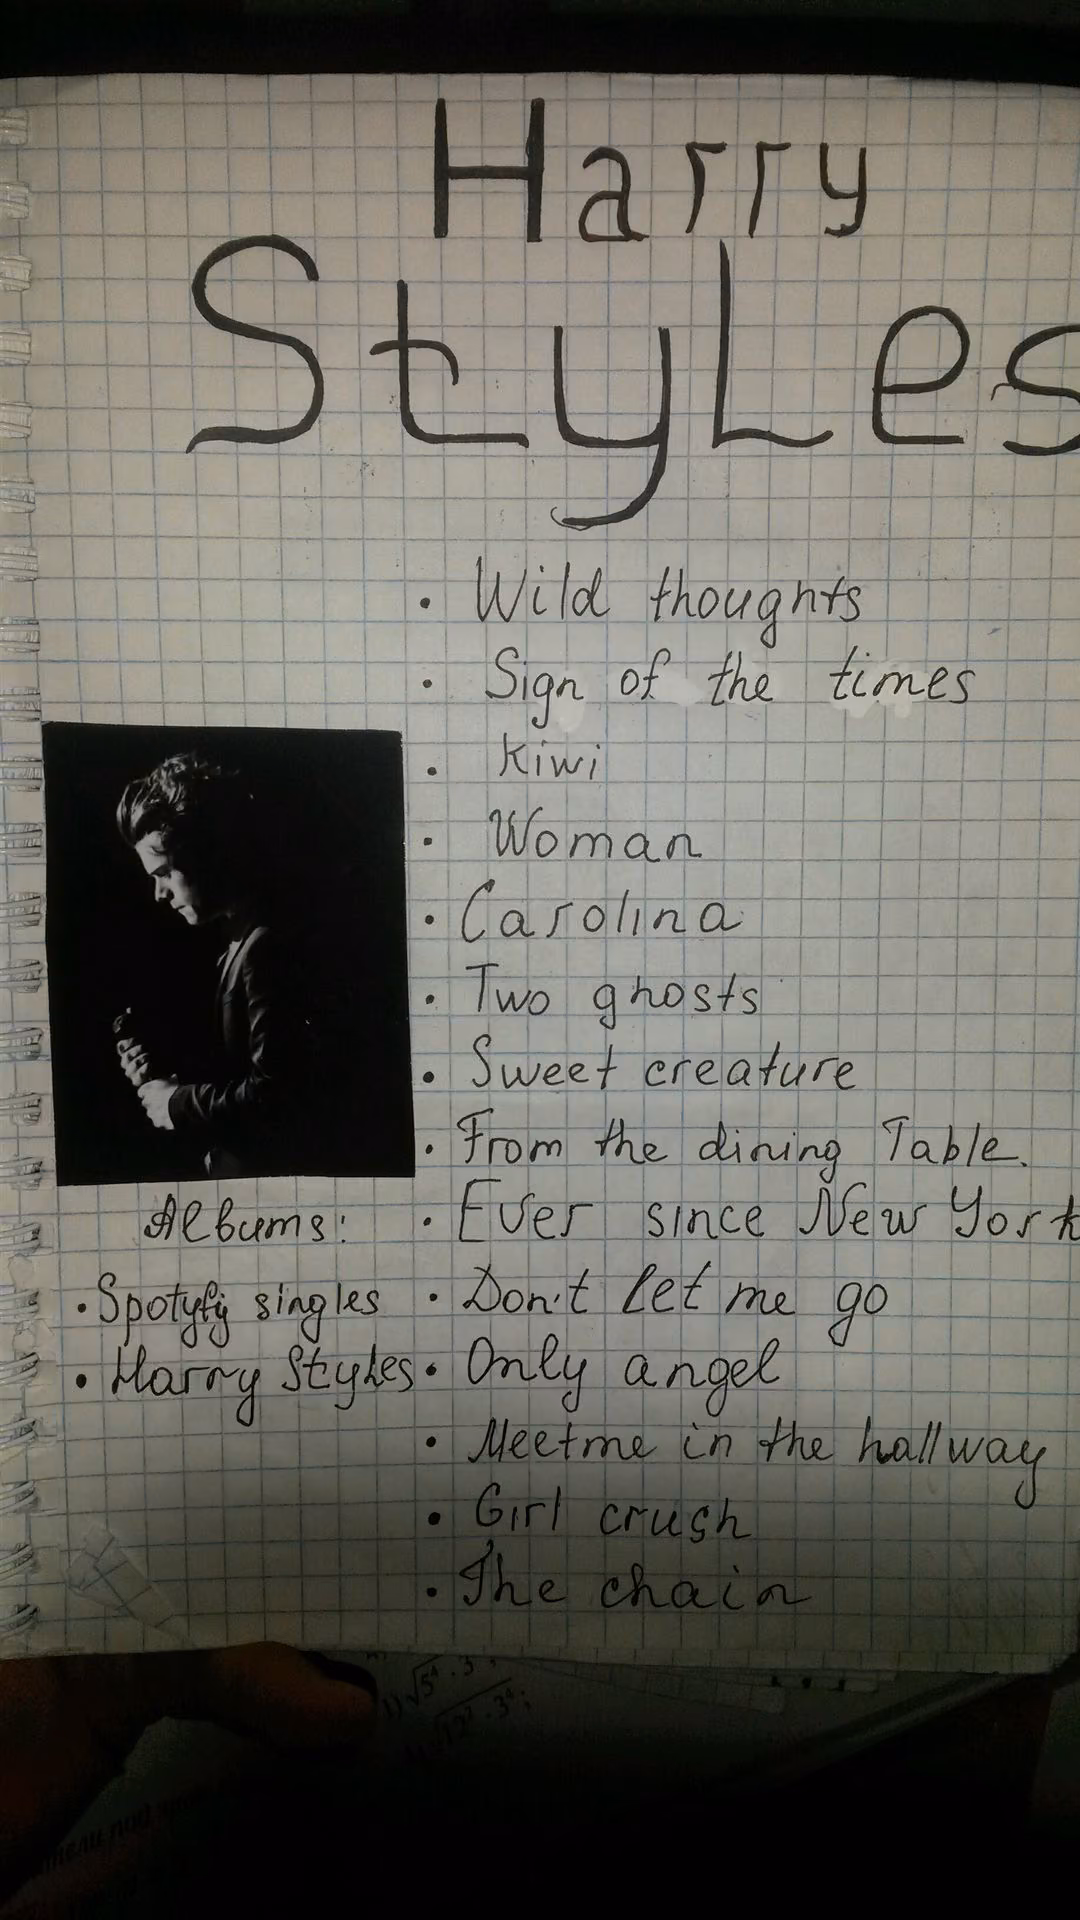 Harry
StyLes
• Wild thoughts
• Sign of the times
• Kiwi
• Woman
• Carolina
• Two ghosts
• Sweet creature
• From the dining Table.
• Ever since New York
• Don't let me go
• Only angel
• Meet me in the hallway
• Girl crush
• The chain
Albums:
• Spotyfy singles
• Harry Styles
1) √5⁴ · 3